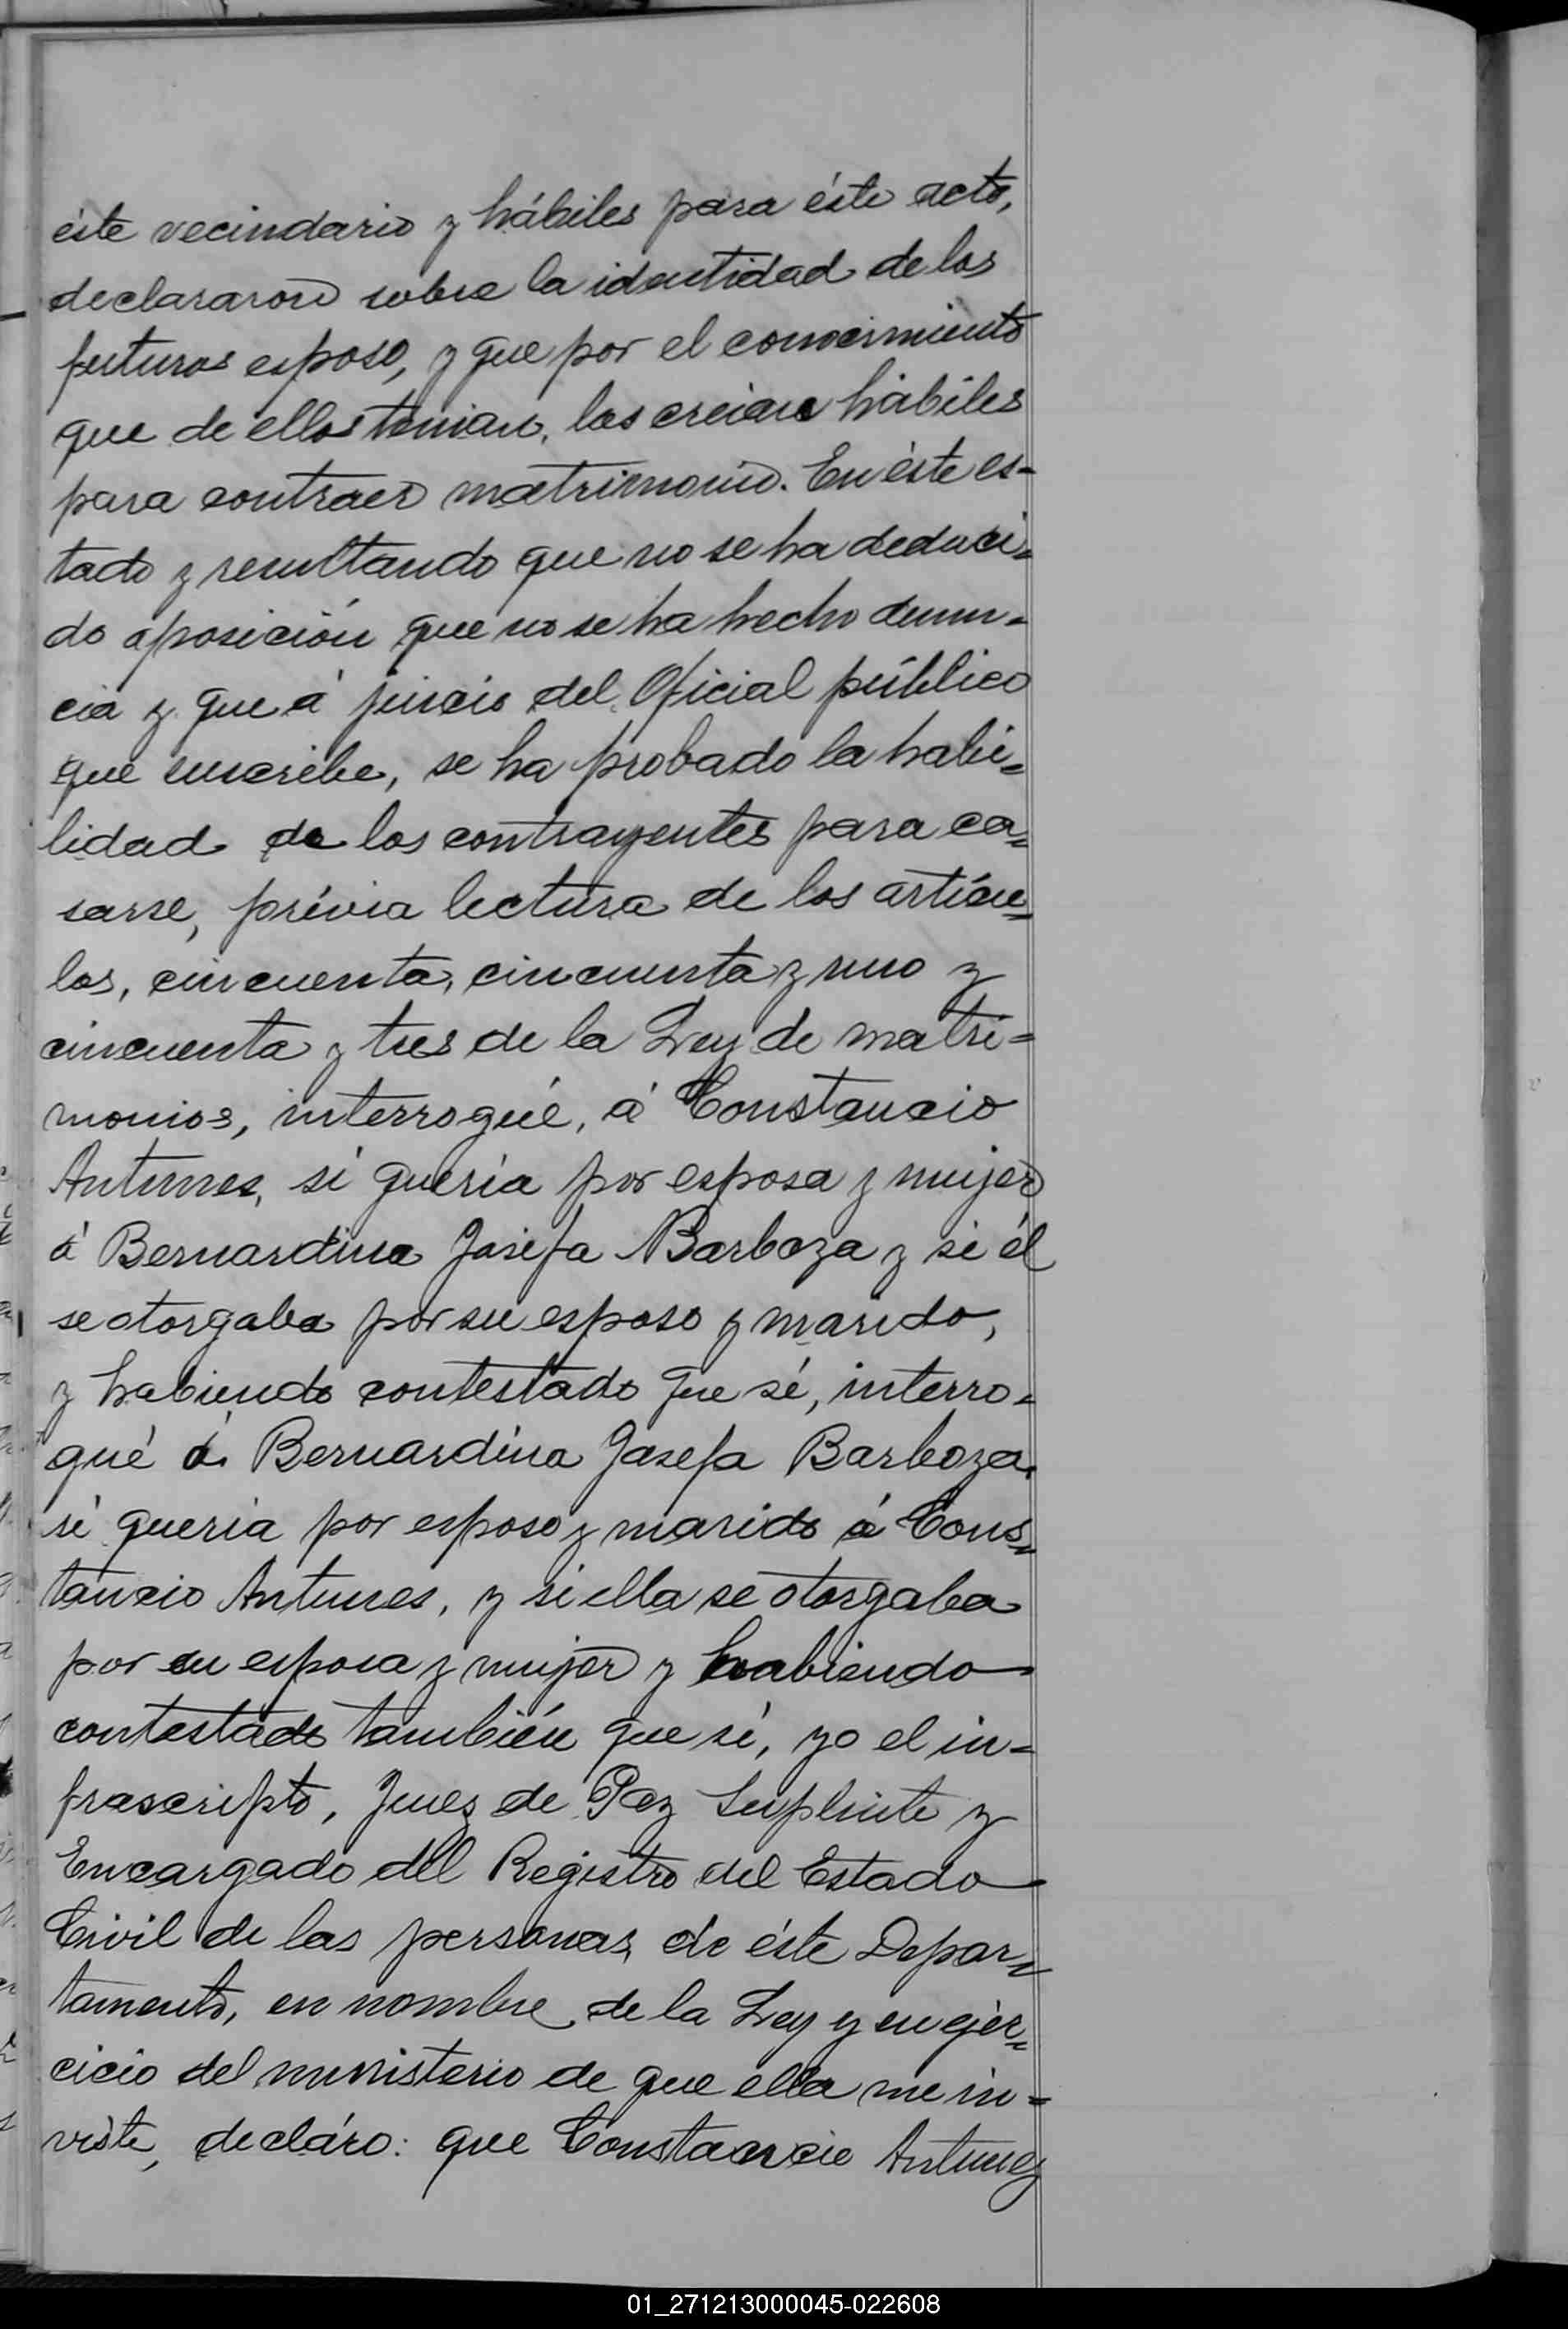 éste vecindario y hábiles para éste acto,
declararon sobre la identidad de los
futuros esposo, y que por el conocimiento
que de ellos tenian, los creian hábiles
para contraer matrimonio. En éste es-
tado y resultando que no se ha deduci-
do oposición que no se ha hecho denun-
cia y que á juicio del Oficial público
que suscribe, se ha probado la habi-
lidad de los contrayentes para ca-
sarse, prévia lectura de los artícu-
los, cincuenta, cincuenta y uno y
cincuenta y tres de la Ley de matri-
monios, interrogué, á Constancio
Antunes, si queria por esposa y mujer
á Bernardina Josefa Barboza y si él
se otorgaba por su esposo y marido,
y habiendo contestado que sí, interro-
gué á Bernardina Josefa Barboza,
si queria por esposo y marido á Cons-
tancio Antunes, y si ella se otorgaba
por su esposa y mujer y habiendo
contestado también que sí, yo el in-
frascripto, Juez de Paz Suplente y
Encargado del Registro del Estado
Civil de las personas de éste Depar-
tamento, en nombre de la Ley y en ejer-
cicio del ministerio de que ella me in-
viste, decláro: que Constancio Antunez
01_271213000045-022608